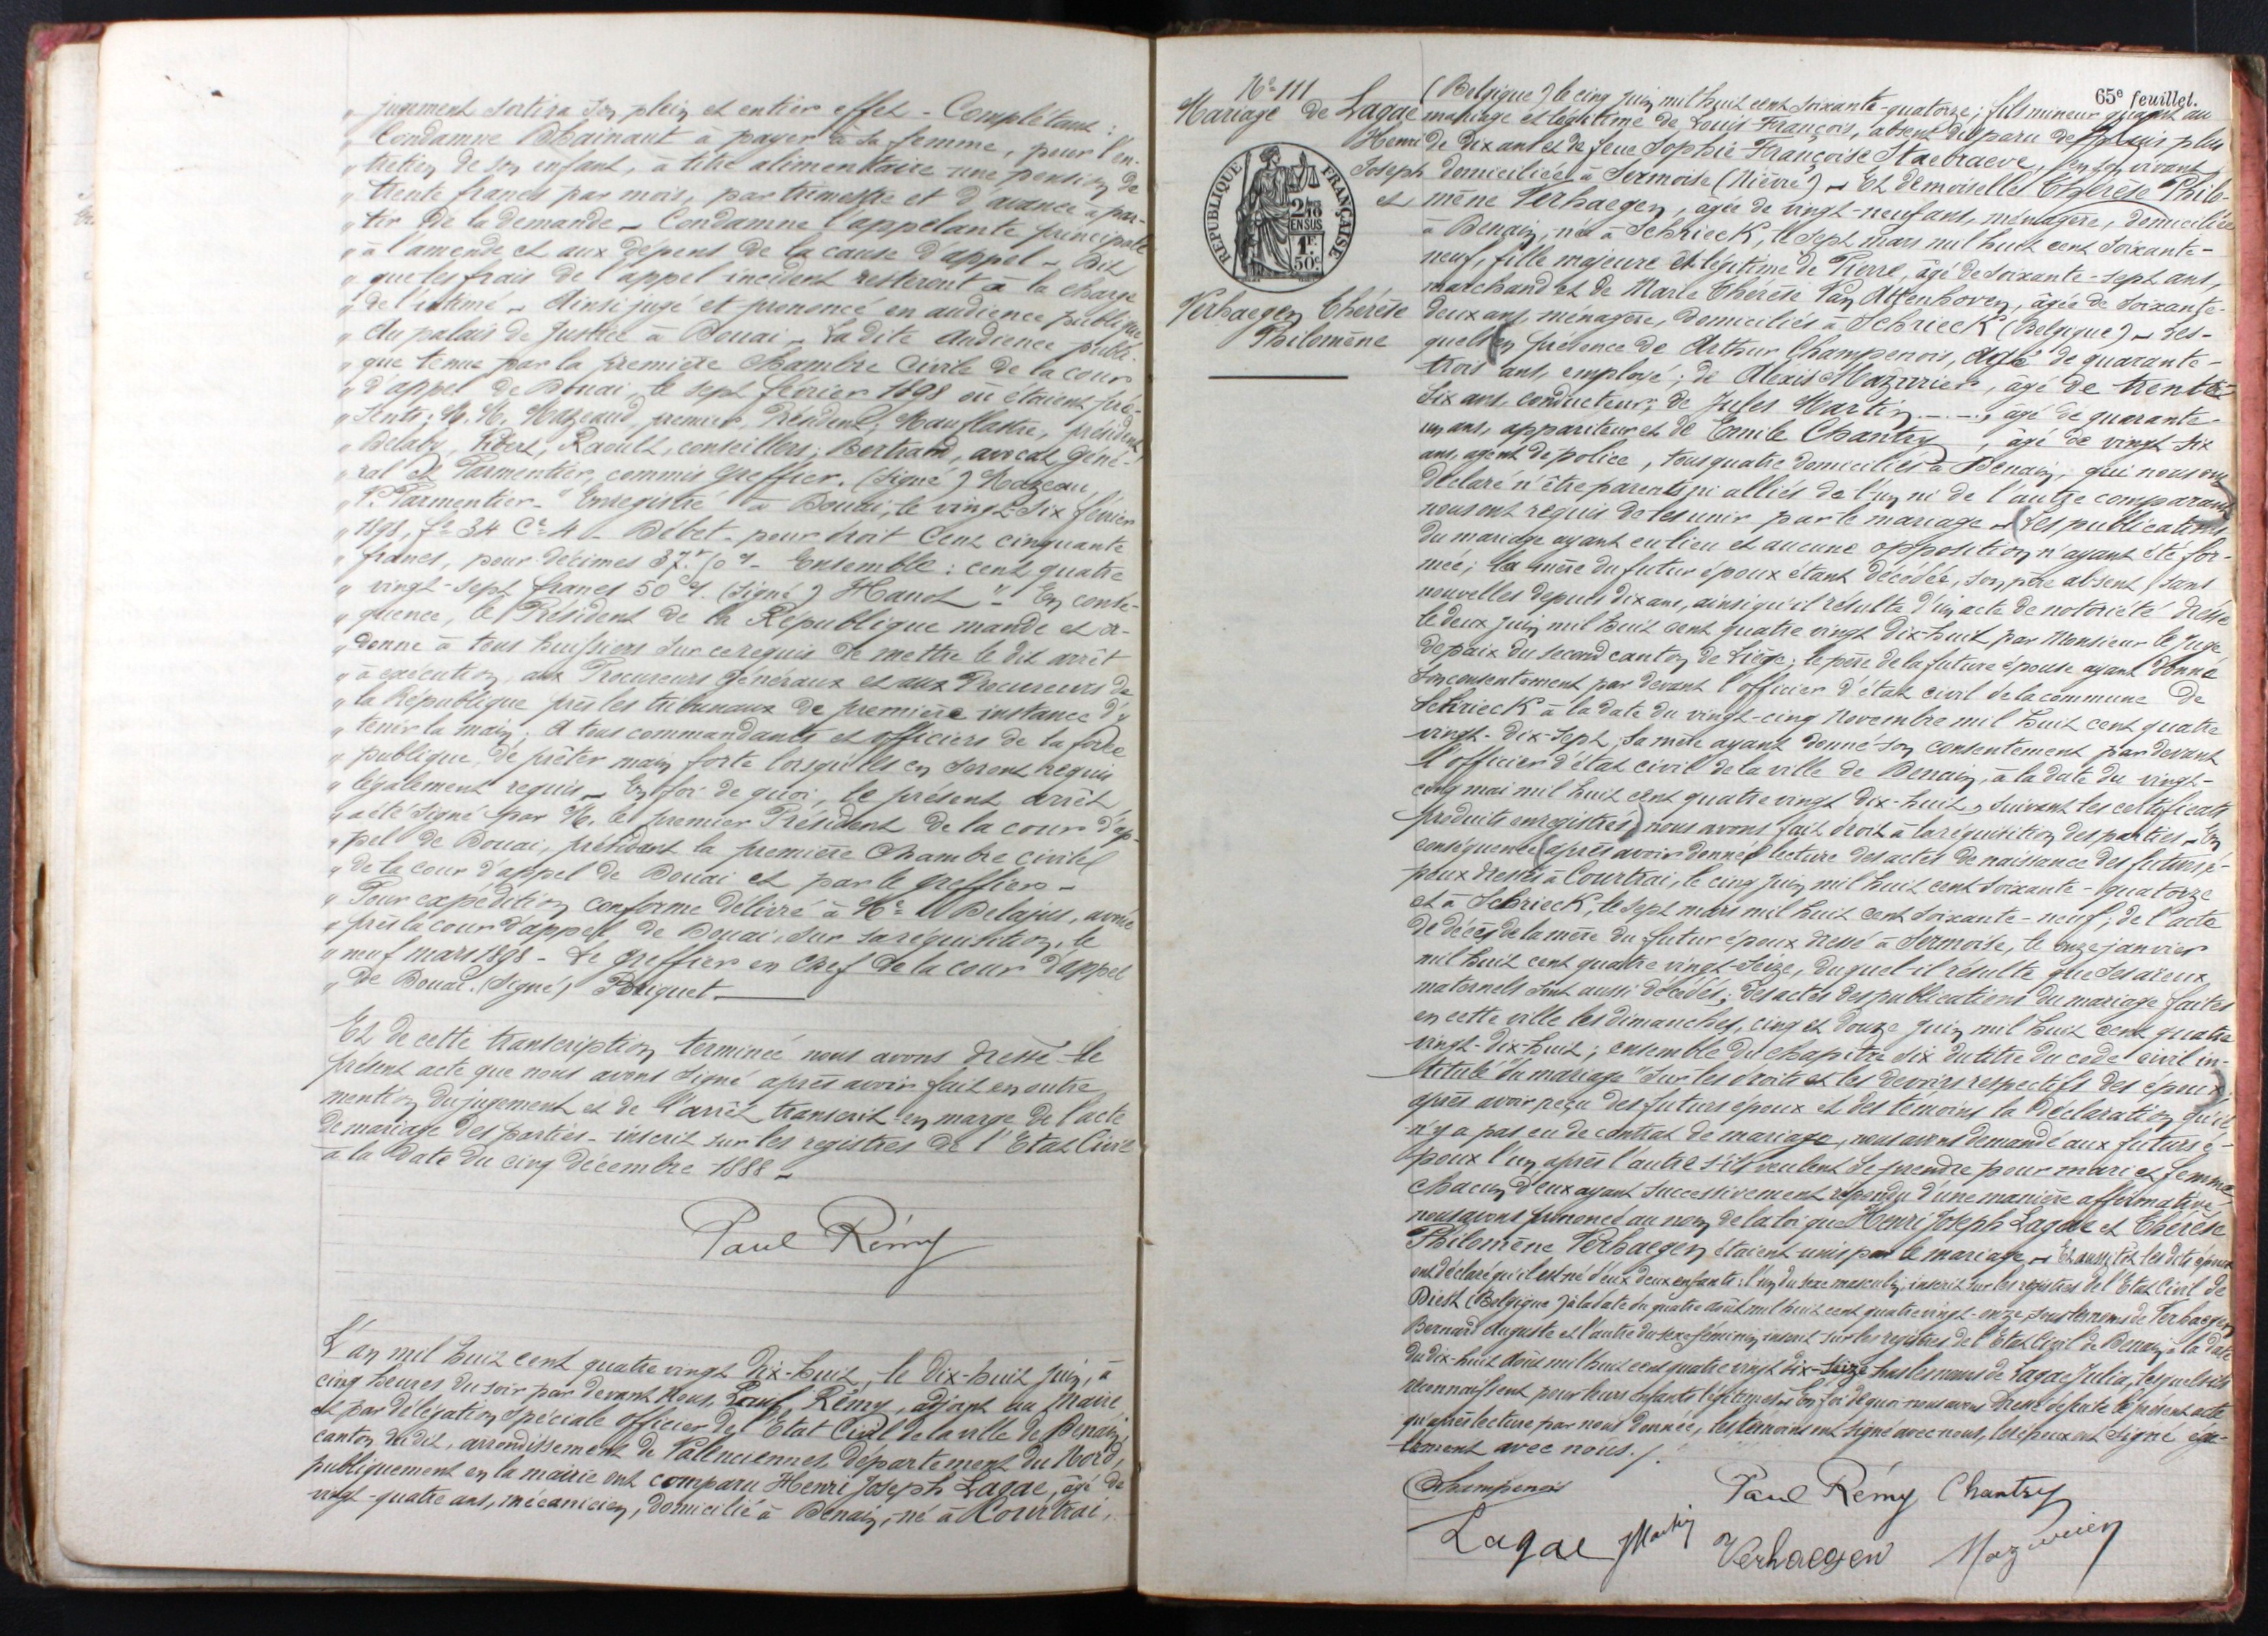 " jugement sortira son plein et entier effet - Complétant :
" Condamne Chainaut à payer à sa femme, pour l'en-
" tretien de son enfant, à titre alimentaire une pension de
" trente francs par mois, par trimestre et d'avance à par-
" tir de la demande - Condamne l'appelante principale
" à l'amende et aux dépens de la cause d'appel - Dit
" que les frais de l'appel incident resteront à la charge
" de l'intimé - Ainsi jugé et prononcé en audience publique
" du palais de Justice à Douai - La dite Audience publi-
" que tenue par la première Chambre Civile de la cour
" d'appel de Douai, le sept février 1898 où étaient pré-
" sents : M. M. Mazeaud, premier Président, Mauflastre, président
" Delaby, Hibert, Raoult, conseillers ; Bertrand, avocat géné-
" ral & Parmentier, commis greffier. (Signé) Mazeau
" P. Parmentier - " Enregistré à Douai, le vingt-six février
" 1898, f° 34 Ce 4 - Débet - pour droit Cent cinquante
" francs, pour décimes 37f 50 c - Ensemble : cent quatre
" vingt-sept francs 50 c. (Signé) Hanot " - En consé-
" quence, le Président de la République mande et or-
" donne à tous huissiers sur ce requis de mettre le dit arrêt
" à exécution, aux Procureurs Généraux et aux Procureurs de
" la République près les tribunaux de première instance d'y
" tenir la main ; A tous commandants et officiers de la force
" publique, de prêter main forte lorsqu'ils en seront requis
" légalement requis - En foi de quoi, le présent arrêt
" a été signé par M. le premier Président de la cour d'ap-
" pel de Douai, présidant la première Chambre civile
" de la cour d'appel de Douai et par le greffier -
" Pour expédition conforme délivré à Me Delajus, avoué
" près la cour d'appel de Douai, sur sa réquisition, le
" neuf mars 1898 - Le greffier en chef de la cour d'appel
" de Douai. (Signé) Pouquet
Et de cette transcription terminée nous avons dressé le
présent acte que nous avons signé après avoir fait en outre
mention du jugement et de l'arrêt transcrit en marge de l'acte
de mariage des parties - inscrit sur les registres de l'Etat Civil
à la date du cinq décembre 1888 -
Paul Rémy
L'an mil huit cent quatre vingt dix-huit, le dix-huit juin, à
cinq heures du soir par devant Nous, Paul, Rémy, adjoint au Maire
et par délégation spéciale officier de l'Etat Civil de la ville de Denain,
canton du dit, arrondissement de Valenciennes, département du Nord,
publiquement en la mairie ont comparu Henri Joseph Lagae, âgé de
vingt-quatre ans, mécanicien, domicilié à Denain, né à Courtrai,
65e feuillet.
No 111
Mariage de Lagae
Henri
Joseph
et
RÉPUBLIQUE FRANÇAISE
2/10 EN SUS
1F. 50c
Verhaegen Thérèse
Philomène
(Belgique) le cinq juin mil huit cent soixante-quatorze ; fils mineur quant au
mariage et légitime de Louis François, absent disparu depuis plus
de dix ans et de feue Sophie Françoise Staebraeve, en son vivant,
domiciliée à Sermoise (Nièvre) - Et Demoiselle Thérèse Philo-
mène Verhaegen, âgée de vingt-neuf ans, ménagère, domiciliée
à Denain, née à Schrieck, le sept mars mil huit cent soixante-
neuf, fille majeure et légitime de Pierre, âgé de soixante-sept ans,
marchand et de Marie Thérèse Van Attenhoven, âgée de soixante-
deux ans, ménagère, domiciliés à Schrieck (Belgique) - Les-
quels (en présence de Arthur Champenois, âgé de quarante-
trois ans, employé ; de Alexis Mazurier, âgé de trente-
six ans, conducteur ; de Jules Martin - - -, âgé de quarante-
un ans, appariteur et de Emile Chantry, âgé de vingt-six
ans, agent de police, tous quatre domiciliés à Denain, qui nous ont
déclaré n'être parents ni alliés de l'un ni de l'autre comparant)
nous ont requis de les unir par le mariage - (Les publications
du mariage ayant eu lieu et aucune opposition n'ayant été for-
mée ; la mère du futur époux étant décédée, son père absent, sans
nouvelles depuis dix ans, ainsi qu'il résulte d'un acte de notoriété dressé
le deux juin mil huit cent quatre vingt dix-huit par Monsieur le Juge
de paix du second canton de Liège ; le père de la future épouse ayant donné
son consentement par devant l'officier d'état civil de la commune de
Schrieck à la date du vingt-cinq Novembre mil huit cent quatre
vingt-dix-sept, sa mère ayant donné son consentement par devant
l'officier d'état civil de la ville de Denain, à la date du vingt-
cinq mai mil huit cent quatre vingt dix-huit, suivant les certificats
produits enregistrés) nous avons fait droit à la réquisition des parties - En
conséquence (après avoir donné lecture des actes de naissance des futurs é-
poux dressés à Courtrai, le cinq juin mil huit cent soixante-quatorze
et à Schrieck, le sept mars mil huit cent soixante-neuf ; de l'acte
de décès de la mère du futur époux dressé à Sermoise, le onze janvier
mil huit cent quatre vingt-seize, duquel il résulte que ses aïeux
maternels sont aussi décédés ; des actes des publications du mariage faites
en cette ville les dimanches, cinq et douze juin mil huit cent quatre
vingt-dix-huit ; ensemble du chapitre six du titre du code civil in-
titulé du mariage " Sur les droits et les devoirs respectifs des époux ;
après avoir reçu des futurs époux et des témoins la déclaration qu'il
n'y a pas eu de contrat de mariage, nous avons demandé aux futurs é-
poux l'un après l'autre s'ils veulent se prendre pour mari et femme,
chacun d'eux ayant successivement répondu d'une manière affirmative,
nous avons prononcé au nom de la loi que Henri Joseph Lagae et Thérèse
Philomène Verhaegen étaient unis par le mariage - Et aussitôt les dits époux
ont déclaré qu'il est né d'eux deux enfants : l'un du sexe masculin, inscrit sur les registres de l'Etat Civil de
Diest (Belgique) à la date du quatre août mil huit cent quatre vingt-onze, sous les noms de Verhaegen
Bernard Auguste et l'autre du sexe féminin, inscrit sur les registres de l'Etat Civil de Denain à la date
du dix-huit août mil huit cent quatre vingt dix-seize sous les noms de Lagae Julia, lesquels ils
reconnaissent pour leurs enfants légitimes - En foi de quoi nous avons dressé de suite le présent acte
qu'après lecture par nous donnée, les témoins ont signé avec nous, les époux ont signé éga-
lement avec nous./.
Champenois Paul Rémy Chantry
Lagae JMartin Verhaegen Mazurier